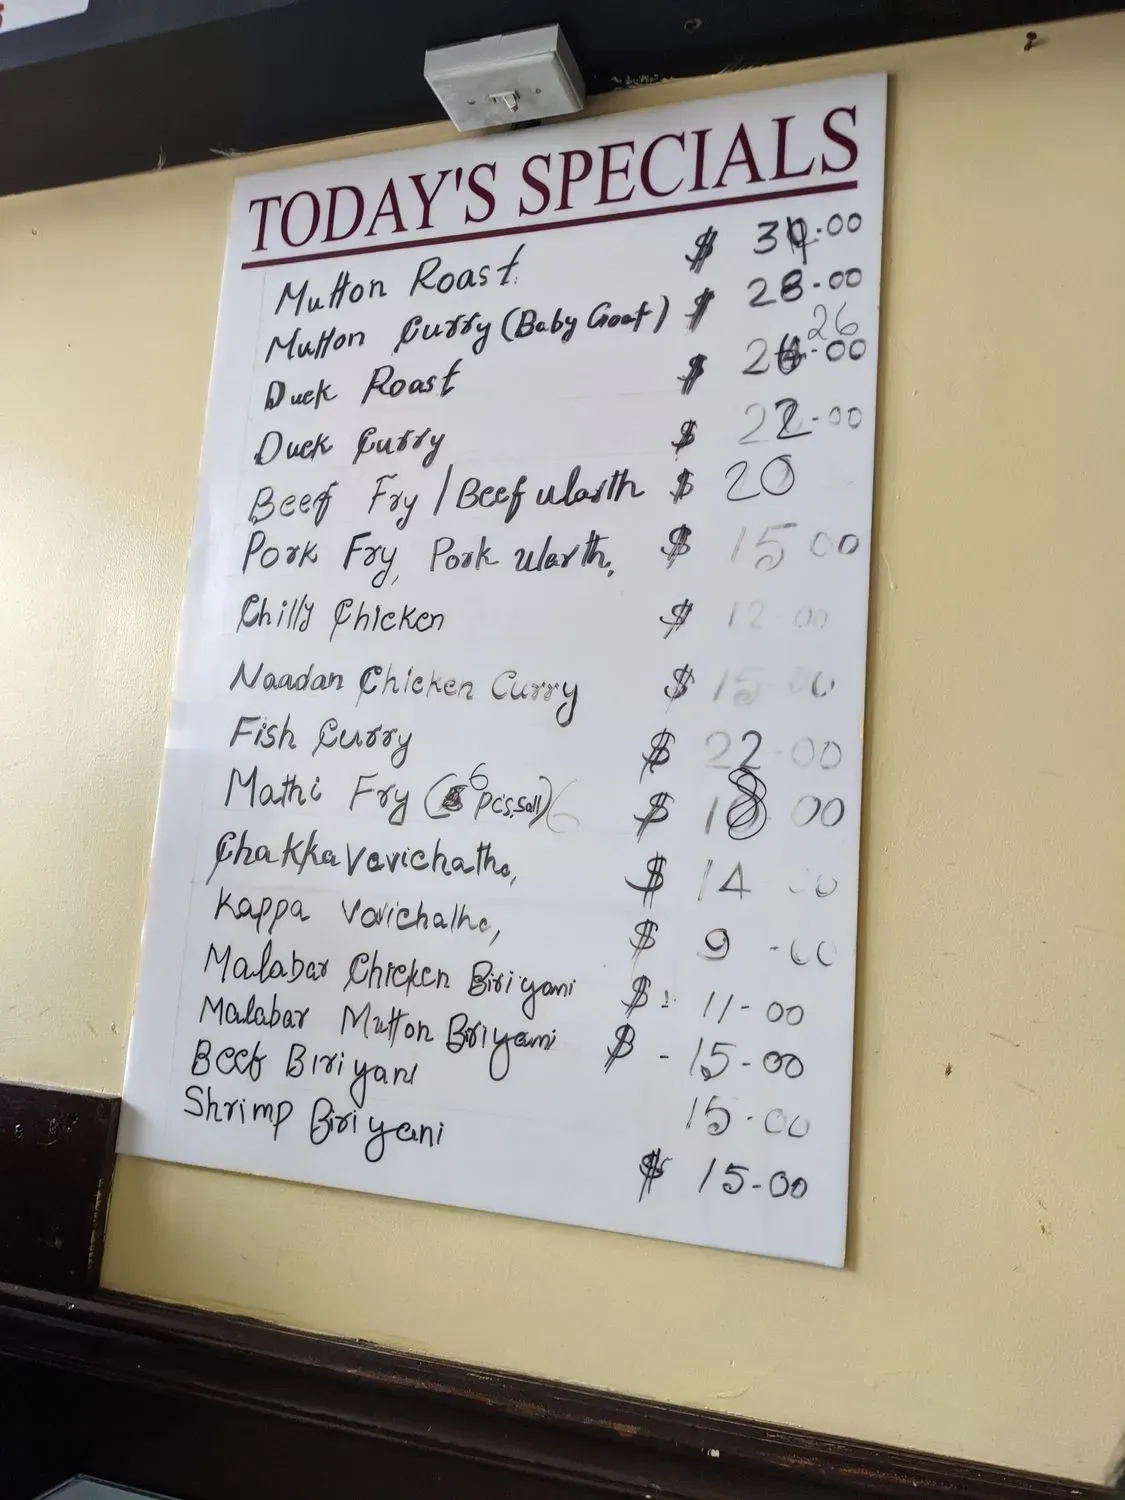 TODAY'S SPECIALS
Mutton Roast $ 34.00
Mutton Curry (Baby Goat) $ 28.00
26
Duck Roast $ 26.00
Duck Curry $ 22.00
Beef Fry / Beef ularth $ 20
Pork Fry, Pork ularth, $ 15 00
Chilly Chicken $ 12 00
Naadan Chicken Curry $ 15 00
Fish Curry $ 22.00
Mathi Fry (6 pcs. ) 6 $ 18 00
Chakka Vevichathe, $ 14 00
Kappa Vevichathe, $ 9 -00
Malabar Chicken Biriyani $ 11-00
Malabar Mutton Biriyani $ - 15-00
Beef Biriyani 15-00
Shrimp Biriyani $ 15-00